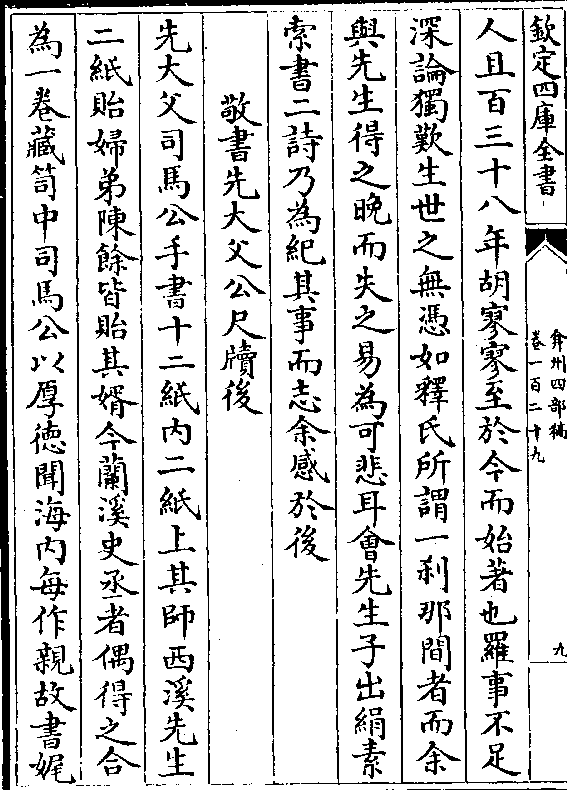 欽定四庫全書
弇州四部稿
卷一百二十九
九
人且百三十八年胡寥寥至於今而始著也羅事不足
深論獨歎生世之無憑如釋氏所謂一刹那間者而余
與先生得之晚而失之易為可悲耳會先生子出絹素
索書二詩乃為紀其事而志余感於後
敬書先大父公尺牘後
先大父司馬公手書十二紙内二紙上其師西溪先生
二紙貽婦弟陳餘皆貽其婿今蘭溪史丞者偶得之合
為一卷藏笥中司馬公以厚徳聞海内每作親故書娓